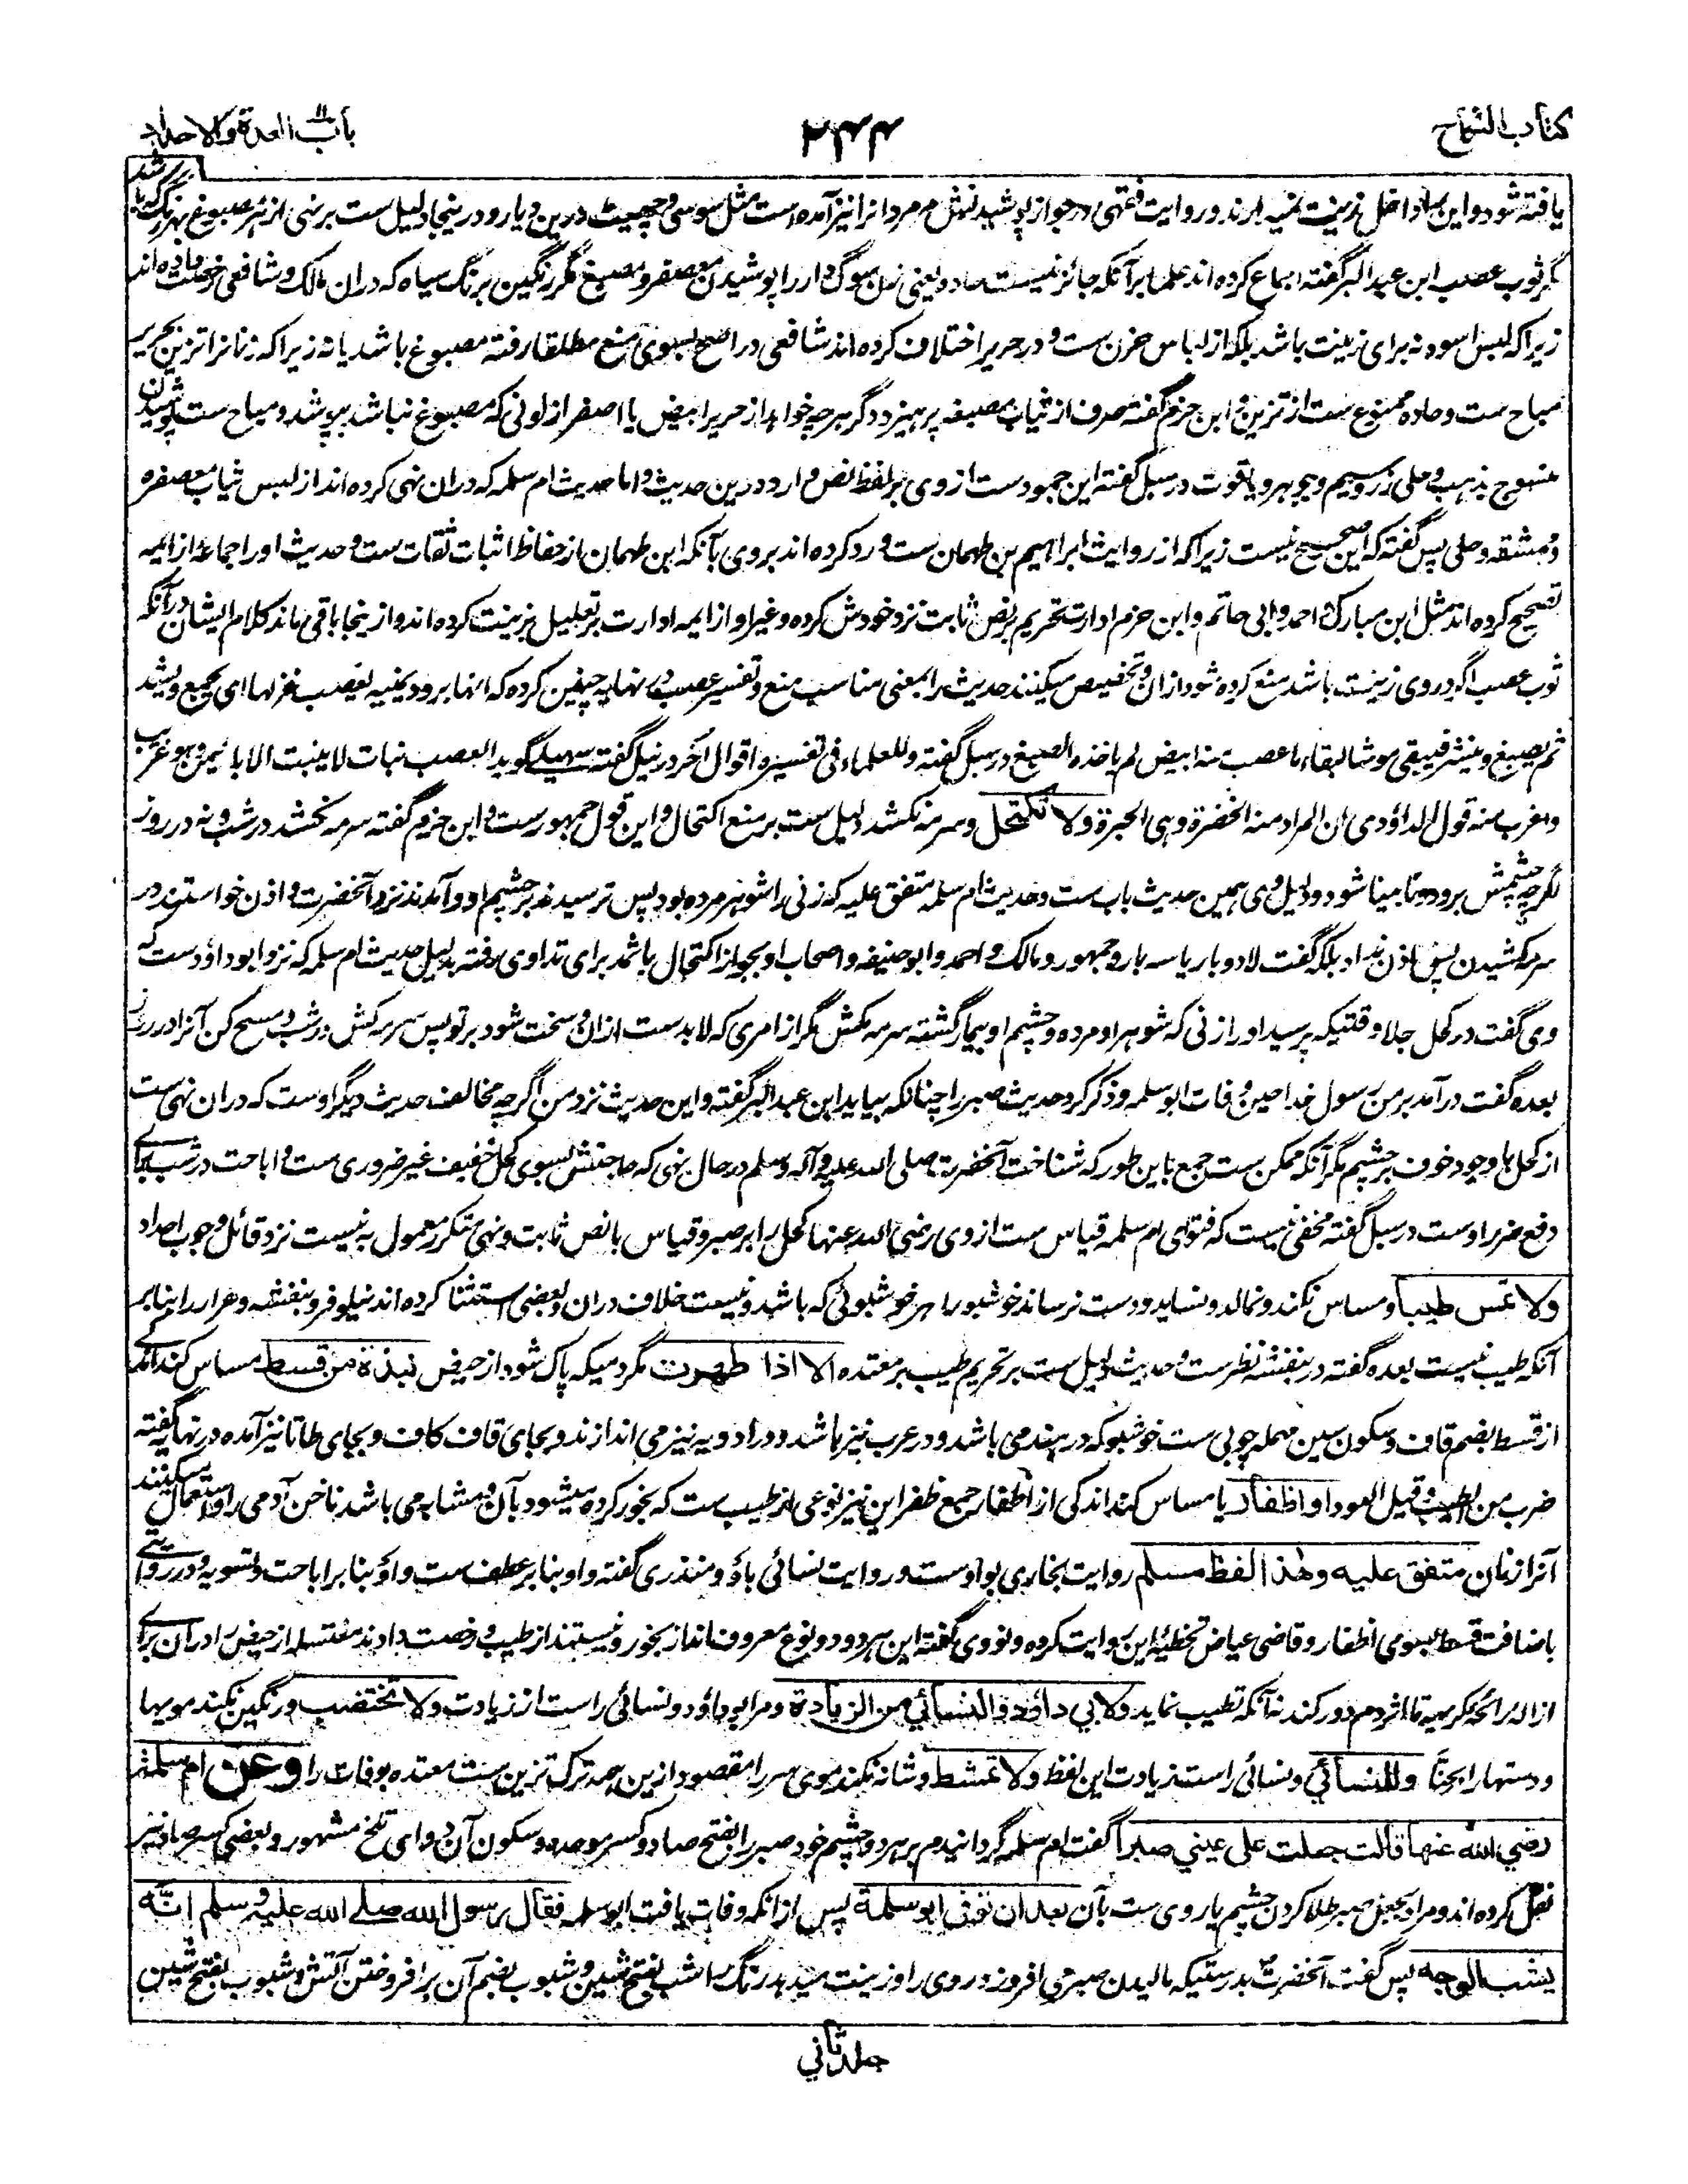 كتاب النكاح
۲۴۴
باب العدة والاحداد
یافته شود و این را داخل زینت نمیدارند و روایت فقهی در جواز پوشیدنش مر مردانرا نیز آمده است مثل سوسی و چهیٹ درین دیار و درینجا دلیل ست بر نهی از هر مصبوغ بهر رنگ که باشد
مگر ثوب عصب ابن عبد البر گفته اجماع کرده‌اند علما بر آنکه جائز نیست حاده یعنی زن سوگ دار را پوشیدن معصفر و مصبغ مگر رنگین برنگ سیاه که دران مالک و شافعی رخصت داده‌اند
زیرا که لبس اسود نه برای زینت باشد بلکه از لباس حزن ست و در حریر اختلاف کرده‌اند شافعی در اصح بسوی منع مطلقا رفته مصبوغ باشد یا نه زیرا که زنانرا تزین بحریر
مباح ست و حاده ممنوع ست از تزین و ابن حزم گفته صرف از ثیاب مصبغه پرهیزد و گر هرچه خواهد از حریر ابیض یا اصفر از لونی که مصبوغ نباشد بپوشد و مباح ست پوشیدن
منسوج بذهب و حلی زر و سیم و جوهر و یاقوت در سبل گفته این جمودست از وی بر لفظ نص وارد درین حدیث و اما حدیث ام سلمه که دران نهی کرده‌اند از لبس ثیاب معصفره
و ممشقه و حلی پس گفته که این صحیح نیست زیرا که از روایت ابراهیم بن طهمان ست و رد کرده‌اند بر وی بآنکه ابن طهمان از حفاظ اثبات ثقات ست و حدیث او را جماعه از ایمه
تصحیح کرده‌اند مثل ابن مبارک و احمد و ابی حاتم و ابن حزم ادارت تحریم بر نص ثابت نزد خودش کرده و غیر او از ایمه ادارت بر تعلیل بزینت کرده‌اند و از ینجا باقی ماند کلام ایشان در آنکه
ثوب عصب اگر در وی زینت باشد منع کرده شود ازان و تخصیص میکنند حدیث را بمعنی مناسب منع و تفسیر عصب در نهایه چنین کرده که انها برود یمنیه یعصب غزلها ای یجمع و یشد
ثم یصبغ و ینشر فیبقی موشا لبقاء ما عصب منه ابیض لم یاخذه الصبغ در سبل گفته و للعلماء فی تفسیره اقوال اخر در نیل گفته سهیلی گوید العصب نبات لا ینبت الا بالیمن و هو غریب
و اغرب منه قول الداؤدی ان المراد منه الخضرة و هی الحبرة ولا تكتحل و سرمه نکشد دلیل ست بر منع اکتحال و این قول جمهور ست و ابن حزم گفته سرمه نکشد در شب و نه در روز
اگرچه چشمش برود و نابینا شود و دلیل وی همین حدیث باب ست و حدیث ام سلمه متفق علیه که زنی را شوهر مرده بود پس ترسیدند بر چشم او و آمدند نزد آنحضرت و اذن خواستند در
سرمه کشیدن پس اذن نداد بلکه گفت لا دو بار یا سه بار و جمهور و مالک و احمد و ابو حنیفه و اصحاب او بجواز اکتحال باثمد برای تداوی رفته بدلیل حدیث ام سلمه که نزد ابو داؤدست که
وی گفت در کحل جلا وقتیکه پرسید او را زنی که شوهر او مرده و چشم او بیمار گشته سرمه مکش مگر از امری که لا بدست ازان و سخت شود بر تو پس سرمه کش در شب و مسح کن آنرا در روز
بعده گفت درآمد بر من رسول خدا حین وفات ابو سلمه و ذکر کرد حدیث صبر را چنانکه بیاید ابن عبد البر گفته و این حدیث نزد من اگرچه مخالف حدیث دیگر اوست که دران نهی ست
از کحل با وجود خوف بر چشم مگر آنکه ممکن ست جمع باین طور که شناخت آنحضرت صلی الله علیه و آله وسلم در حال نهی که حاجتش بسوی کحل خفیف غیر ضروری ست و اباحت در شب برای
دفع ضرر اوست در سبل گفته مخفی نیست که فتوای ام سلمه قیاس ست از وی رضی الله عنها کحل را بر صبر و قیاس با نص ثابت و نهی متکرر معمول به نیست نزد قائل وجوب احداد
ولا تمس طيبا و مساس نکند و نمالد و نساید و دست نرساند خوشبو را هر خوشبوئی که باشد و نیست خلاف دران و بعضی استثنا کرده‌اند نیلوفر و بنفشه و عرار را بنابر
آنکه طیب نیست بعده گفته در بنفشه نظرست و حدیث دلیل ست بر تحریم طیب بر معتده الا اذا طهرت مگر دمیکه پاک شود از حیض نبذة من قسط مساس کند اندکی
از قسط بضم قاف و سکون سین مهمله چوبی ست خوشبو که در هند می باشد و در عرب نیز باشد و در ادویه نیز می اندازند و بجای قاف کاف و بجای طا تا نیز آمده در نهایه گفته
ضرب من الطیب و قیل العود او اظفار یا مساس کند اندکی از اظفار جمع ظفر این نیز نوعی از طیب ست که بخور کرده میشود بآن و مشابه می باشد ناخن آدمی را و استعمال میکنند
آنرا زنان متفق عليه وهذا لفظ مسلم روایت بخاری بواوست و روایت نسائی باؤ و منذری گفته واو بنا بر عطف ست و اؤ بنا بر اباحت و تسویه و در روایتی
باضافت قسط بسوی اظفار و قاضی عیاض تخطیه این روایت کرده و نووی گفته این هر دو دو نوع معروف اند از بخور و نیستند از طیب و رخصت دادند مغتسله از حیض را در آن برای
ازاله رائحه کریهه تا اثر دم دور کند نه آنکه تطیب نماید ولابي داؤد والنسائي من الزيادة و مر ابو داؤد و نسائی راست از زیادت ولا تختضب و رنگین نکند مویها
و دستها را بحنا وللنسائي و نسائی راست زیادت این لفظ ولا تمتشط و شانه نکند موی سر را مقصود ازین همه ترک تزین ست معتده بوفات را وعن ام سلمة
رضي الله عنها قالت جعلت على عيني صبرا گفت ام سلمه گردانیدم بر هر دو چشم خود صبر را بفتح صاد و کسر موحده و سکون آن دوای تلخ مشهور و بعضی کسر صاد نیز
نقل کرده‌اند و مراد بجعل صبر طلا کردن چشم یا روی ست بآن بعد ان توفي ابو سلمة پس از آنکه وفات یافت ابو سلمه فقال رسول الله صلے الله عليه وسلم انه
يشب الوجه پس گفت آنحضرت بدرستیکه مالیدن صبر می افروزد روی را و زینت میدهد رنگ را شب بفتح شین و شبوب بضم آن بر افروختن آتش و شبوب بفتح شین
جلد ثاني